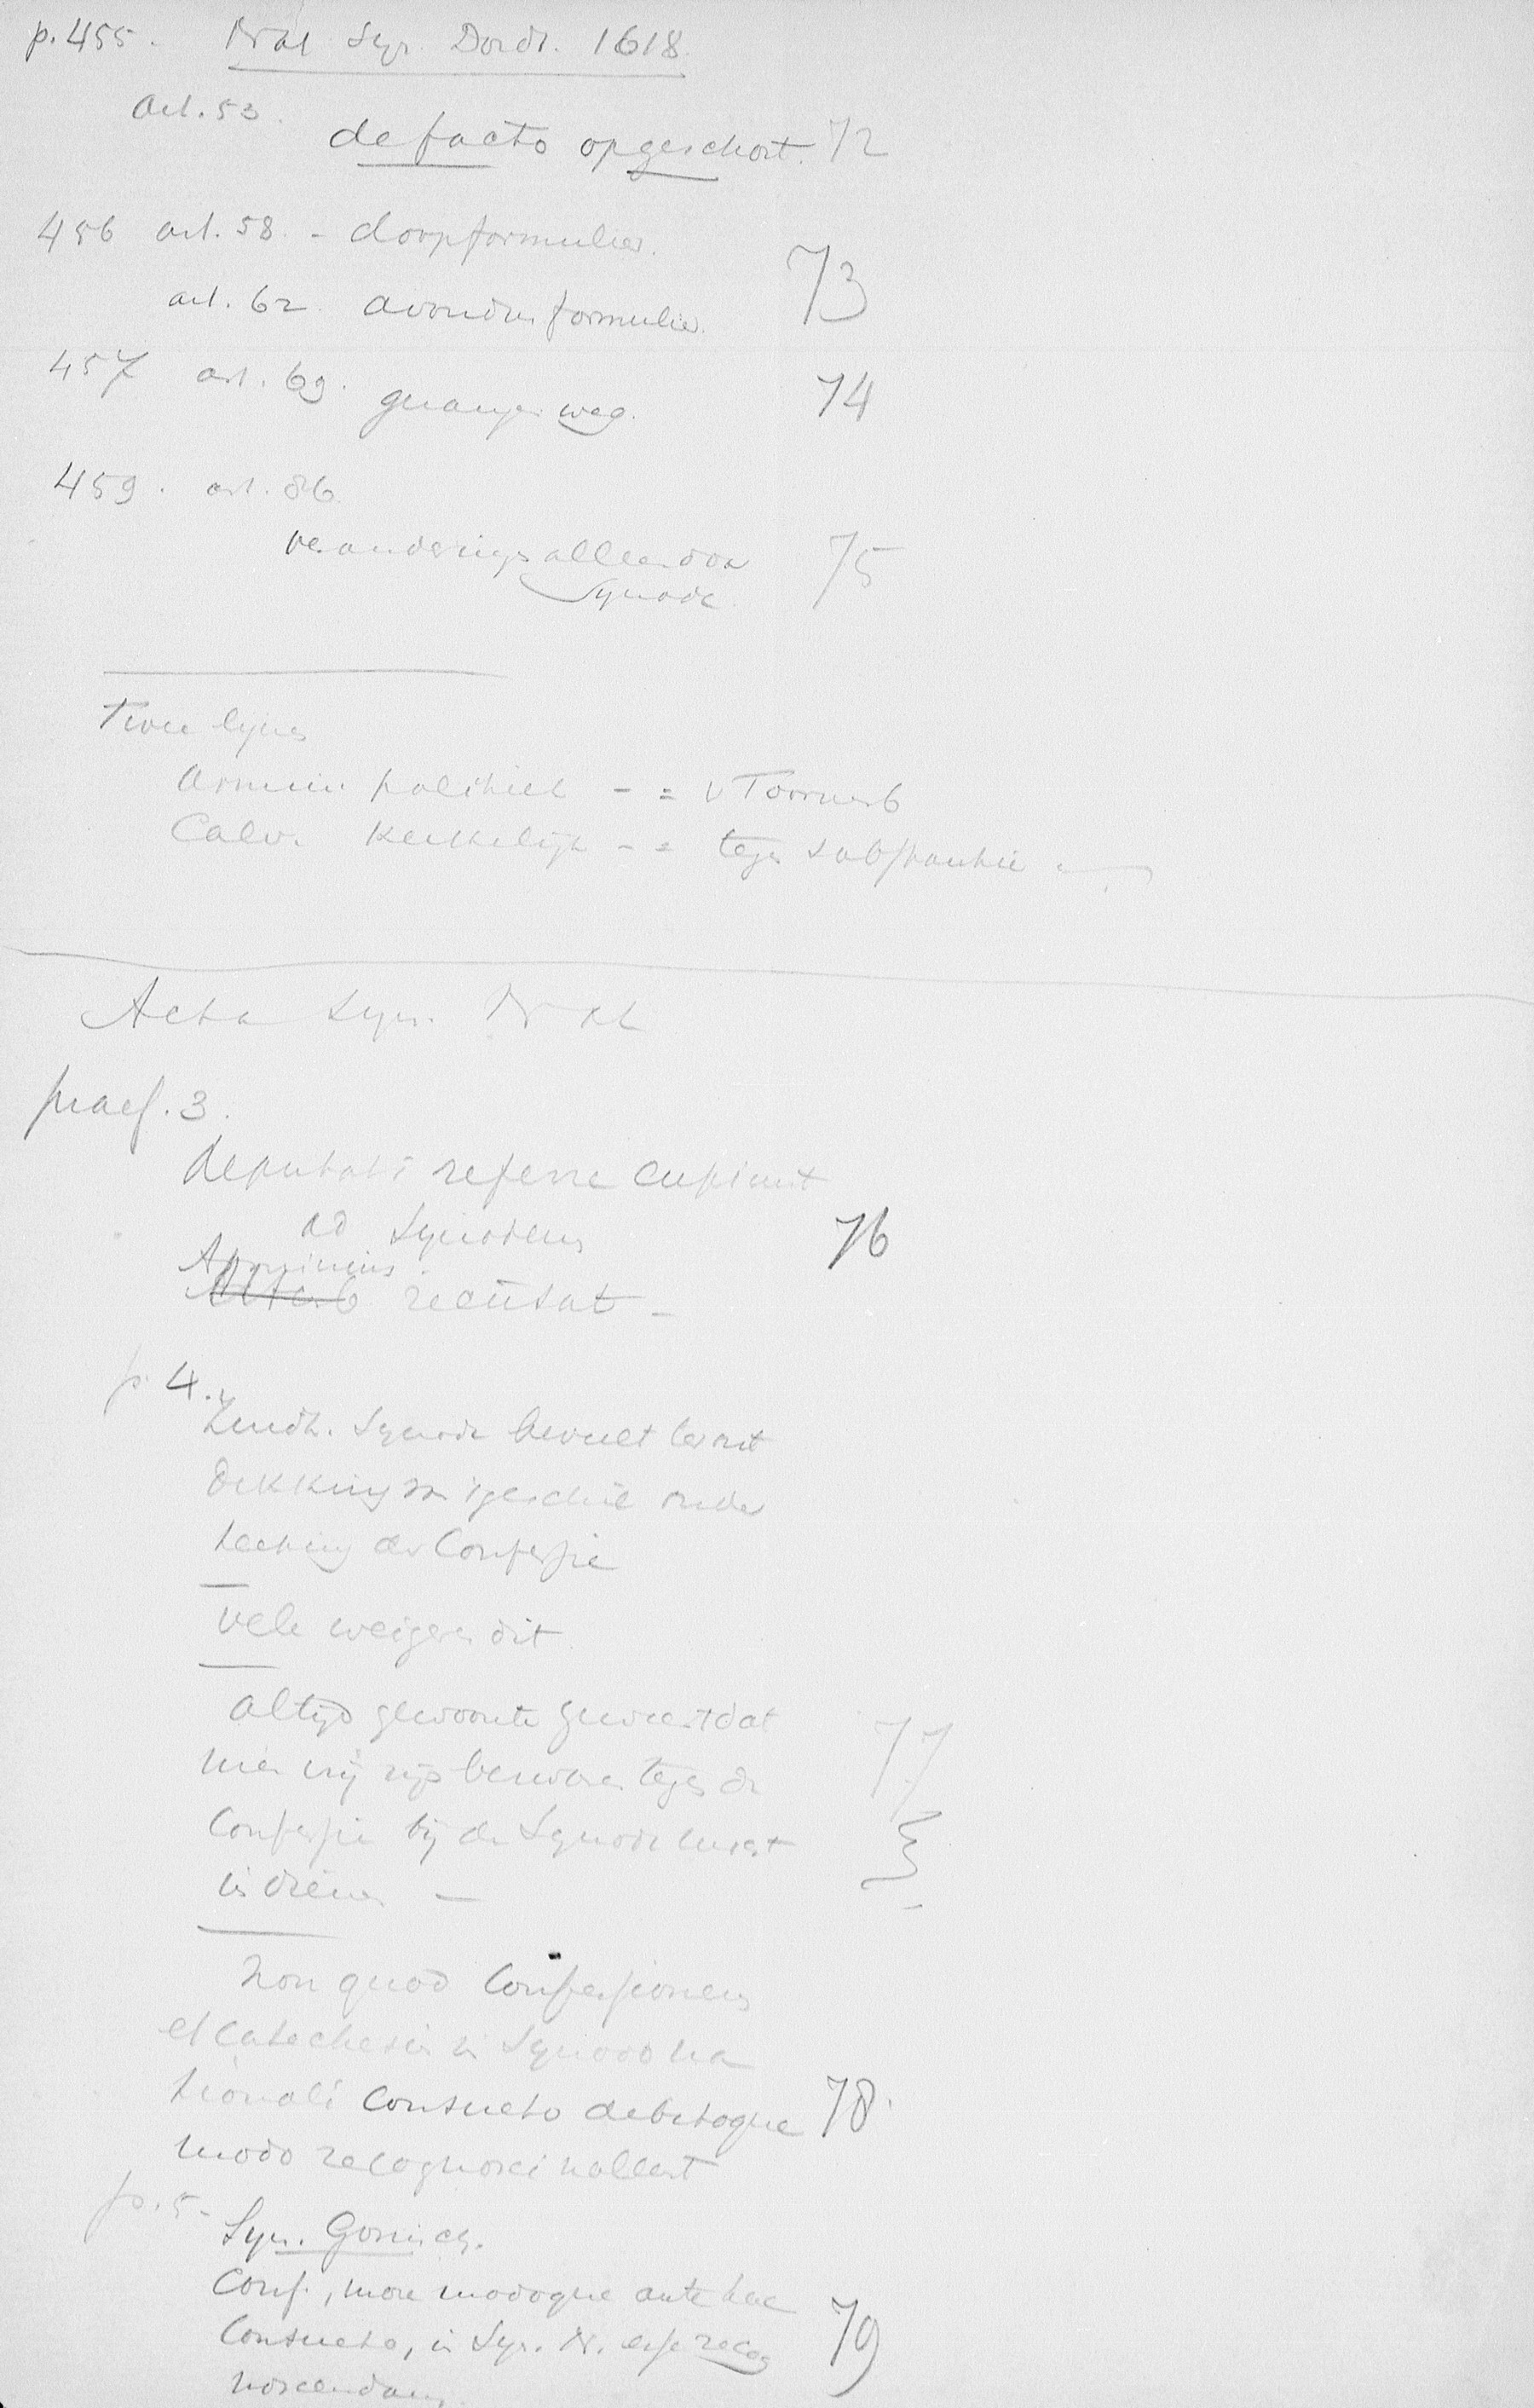 p. 455. Nat Syn. Dordr. 1618.
Art. 53.
de facto opgeschort. 72
456 art. 58. - doopformulier.
73
art. 62. avondm formulier.
457 art. 69. gezangen weg. 74
459. art. 86.
veranderingen alleen door 75
Synode
Twee lijnen
Armin. politiek - =
Calv. Kerkelijk - = tegen substantie
Acta Syn. Nat
praef. 3.
deputati referre cupiunt
ad Synodum 76
Arminius
recusat -
p. 4.
Zuidh. Synode beveelt
dekking van geschil onder
teekening der Confessie
vele weigeren dit.
altijd gewoonte geweest dat
men vrij zijn bezwaren tegen de 77
Confessie bij de Synode moest
indienen -
Non quod Confessionem
et Catechesin in Synodo na
tionali consueto debitoque 78.
modo recognosci nollent
p. 5.
Syn. Gorinch.
Conf., more modoque antehac
consueto, in Syn. N. esse recog 79
noscendam.